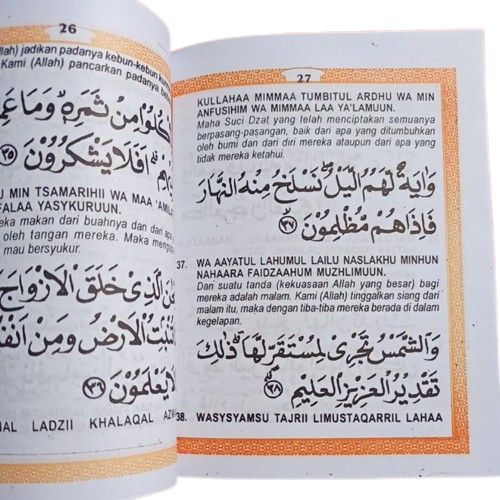 26
llah) jadikan padanya kebun-kebun kur
Kami (Allah) pancarkan padanya be
كُلُوا۟ مِنْ ثَمَرِهٖ وَمَا عَمِ
اَفَلَا يَشْكُرُوْنَ ٣٥
U MIN TSAMARIHII WA MAA 'AMIL
FALAA YASYKURUUN.
reka makan dari buahnya dan dari apa
oleh tangan mereka. Maka mengapa
mau bersyukur.
الَّذِيْ خَلَقَ الْاَزْوَاجَ
تُنْبِتُ الْاَرْضُ وَمِنْ اَنْفُ
لَا يَعْلَمُوْنَ ٣٦
LADZII KHALAQAL AZW
27
KULLAHAA MIMMAA TUMBITUL ARDHU WA MIN
ANFUSIHIM WA MIMMAA LAA YA'LAMUUN.
Maha Suci Dzat yang telah menciptakan semuanya
berpasang-pasangan, baik dari apa yang ditumbuhkan
oleh bumi dan dari diri mereka ataupun dari apa yang
tidak mereka ketahui.
وَاٰيَةٌ لَهُمُ الَّيْلُ نَسْلَخُ مِنْهُ النَّهَارَ
فَاِذَاهُمْ مُظْلِمُوْنَ ٣٧
37. WA AAYATUL LAHUMUL LAILU NASLAKHU MINHUN
NAHAARA FAIDZAAHUM MUZHLIMUUN.
Dan suatu tanda (kekuasaan Allah yang besar) bagi
mereka adalah malam. Kami (Allah) tinggalkan siang dari
malam itu, maka dengan tiba-tiba mereka berada di dalam
kegelapan.
وَالشَّمْسُ تَجْرِيْ لِمُسْتَقَرٍّ لَهَا ذٰلِكَ
تَقْدِيْرُ الْعَزِيْزِ الْعَلِيْمِ ٣٨
38. WASYSYAMSU TAJRII LIMUSTAQARRIL LAHAA